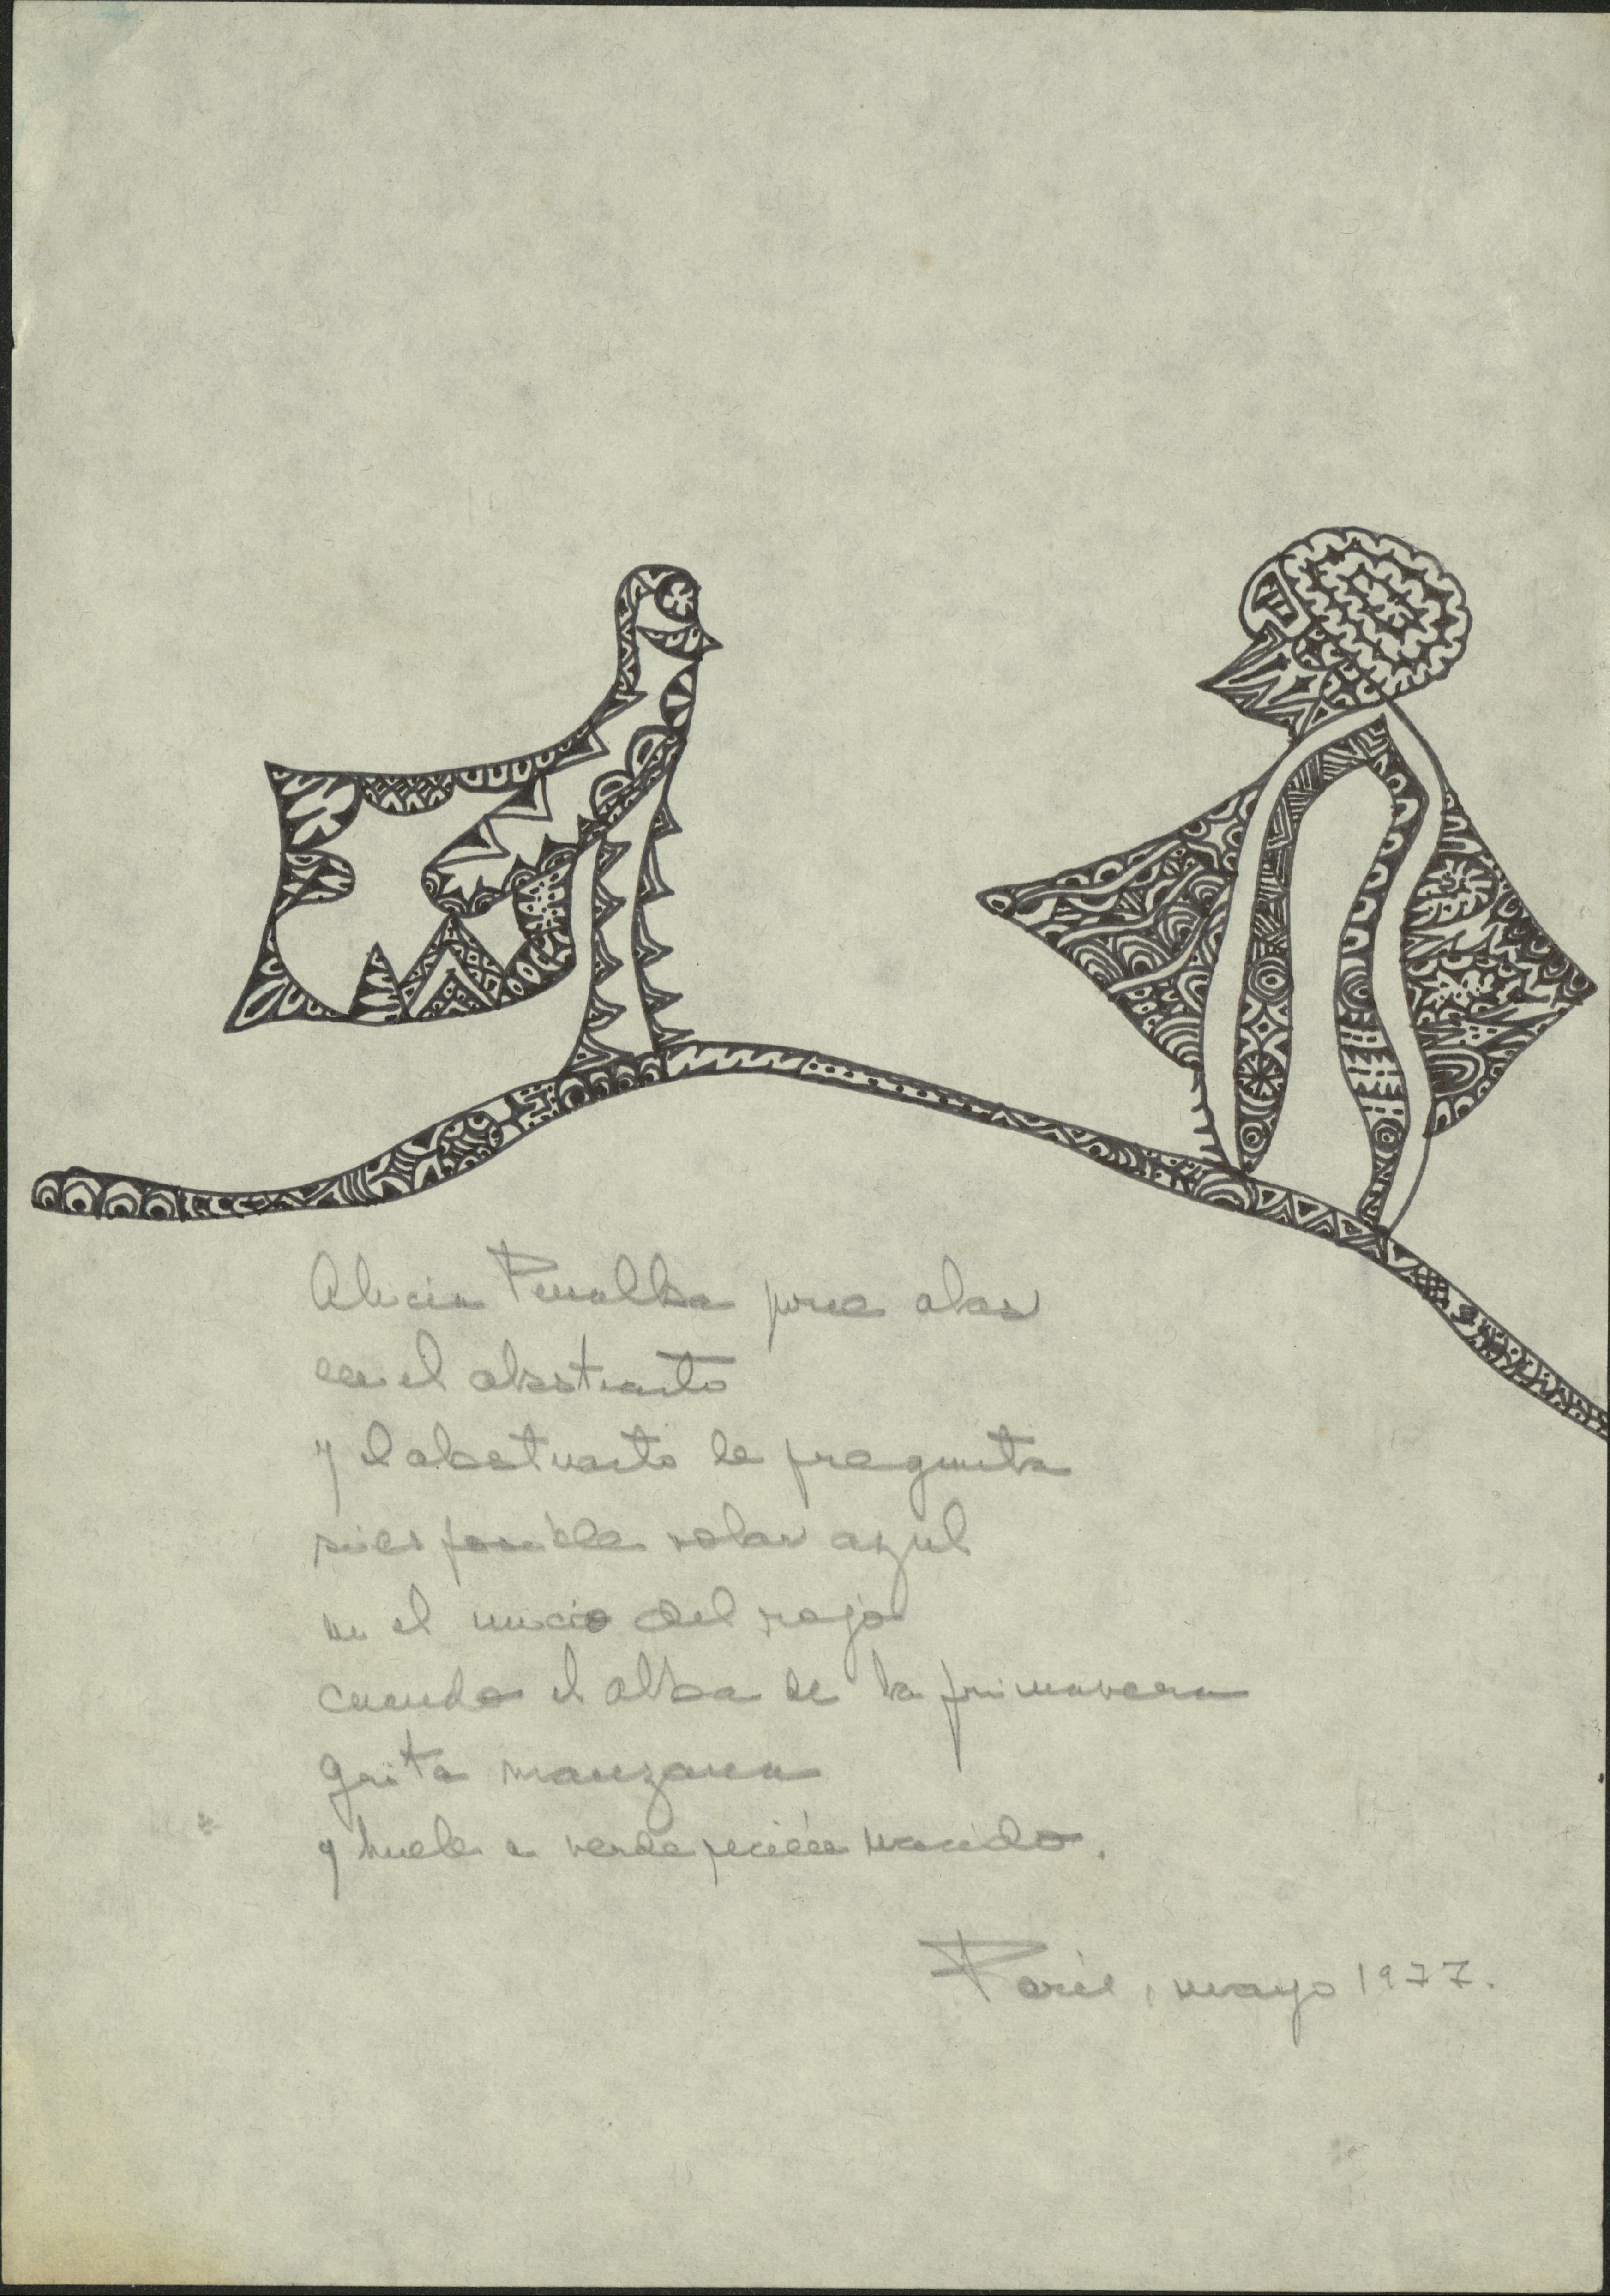 Alicia Penalba pone alas
en el abstracto
y el abstracto le pregunta
si es posible volar azul
en el inicio del rojo
cuando el alba de la primavera
grita manzana
y huele a verde recién nacido.
París, mayo 1977.